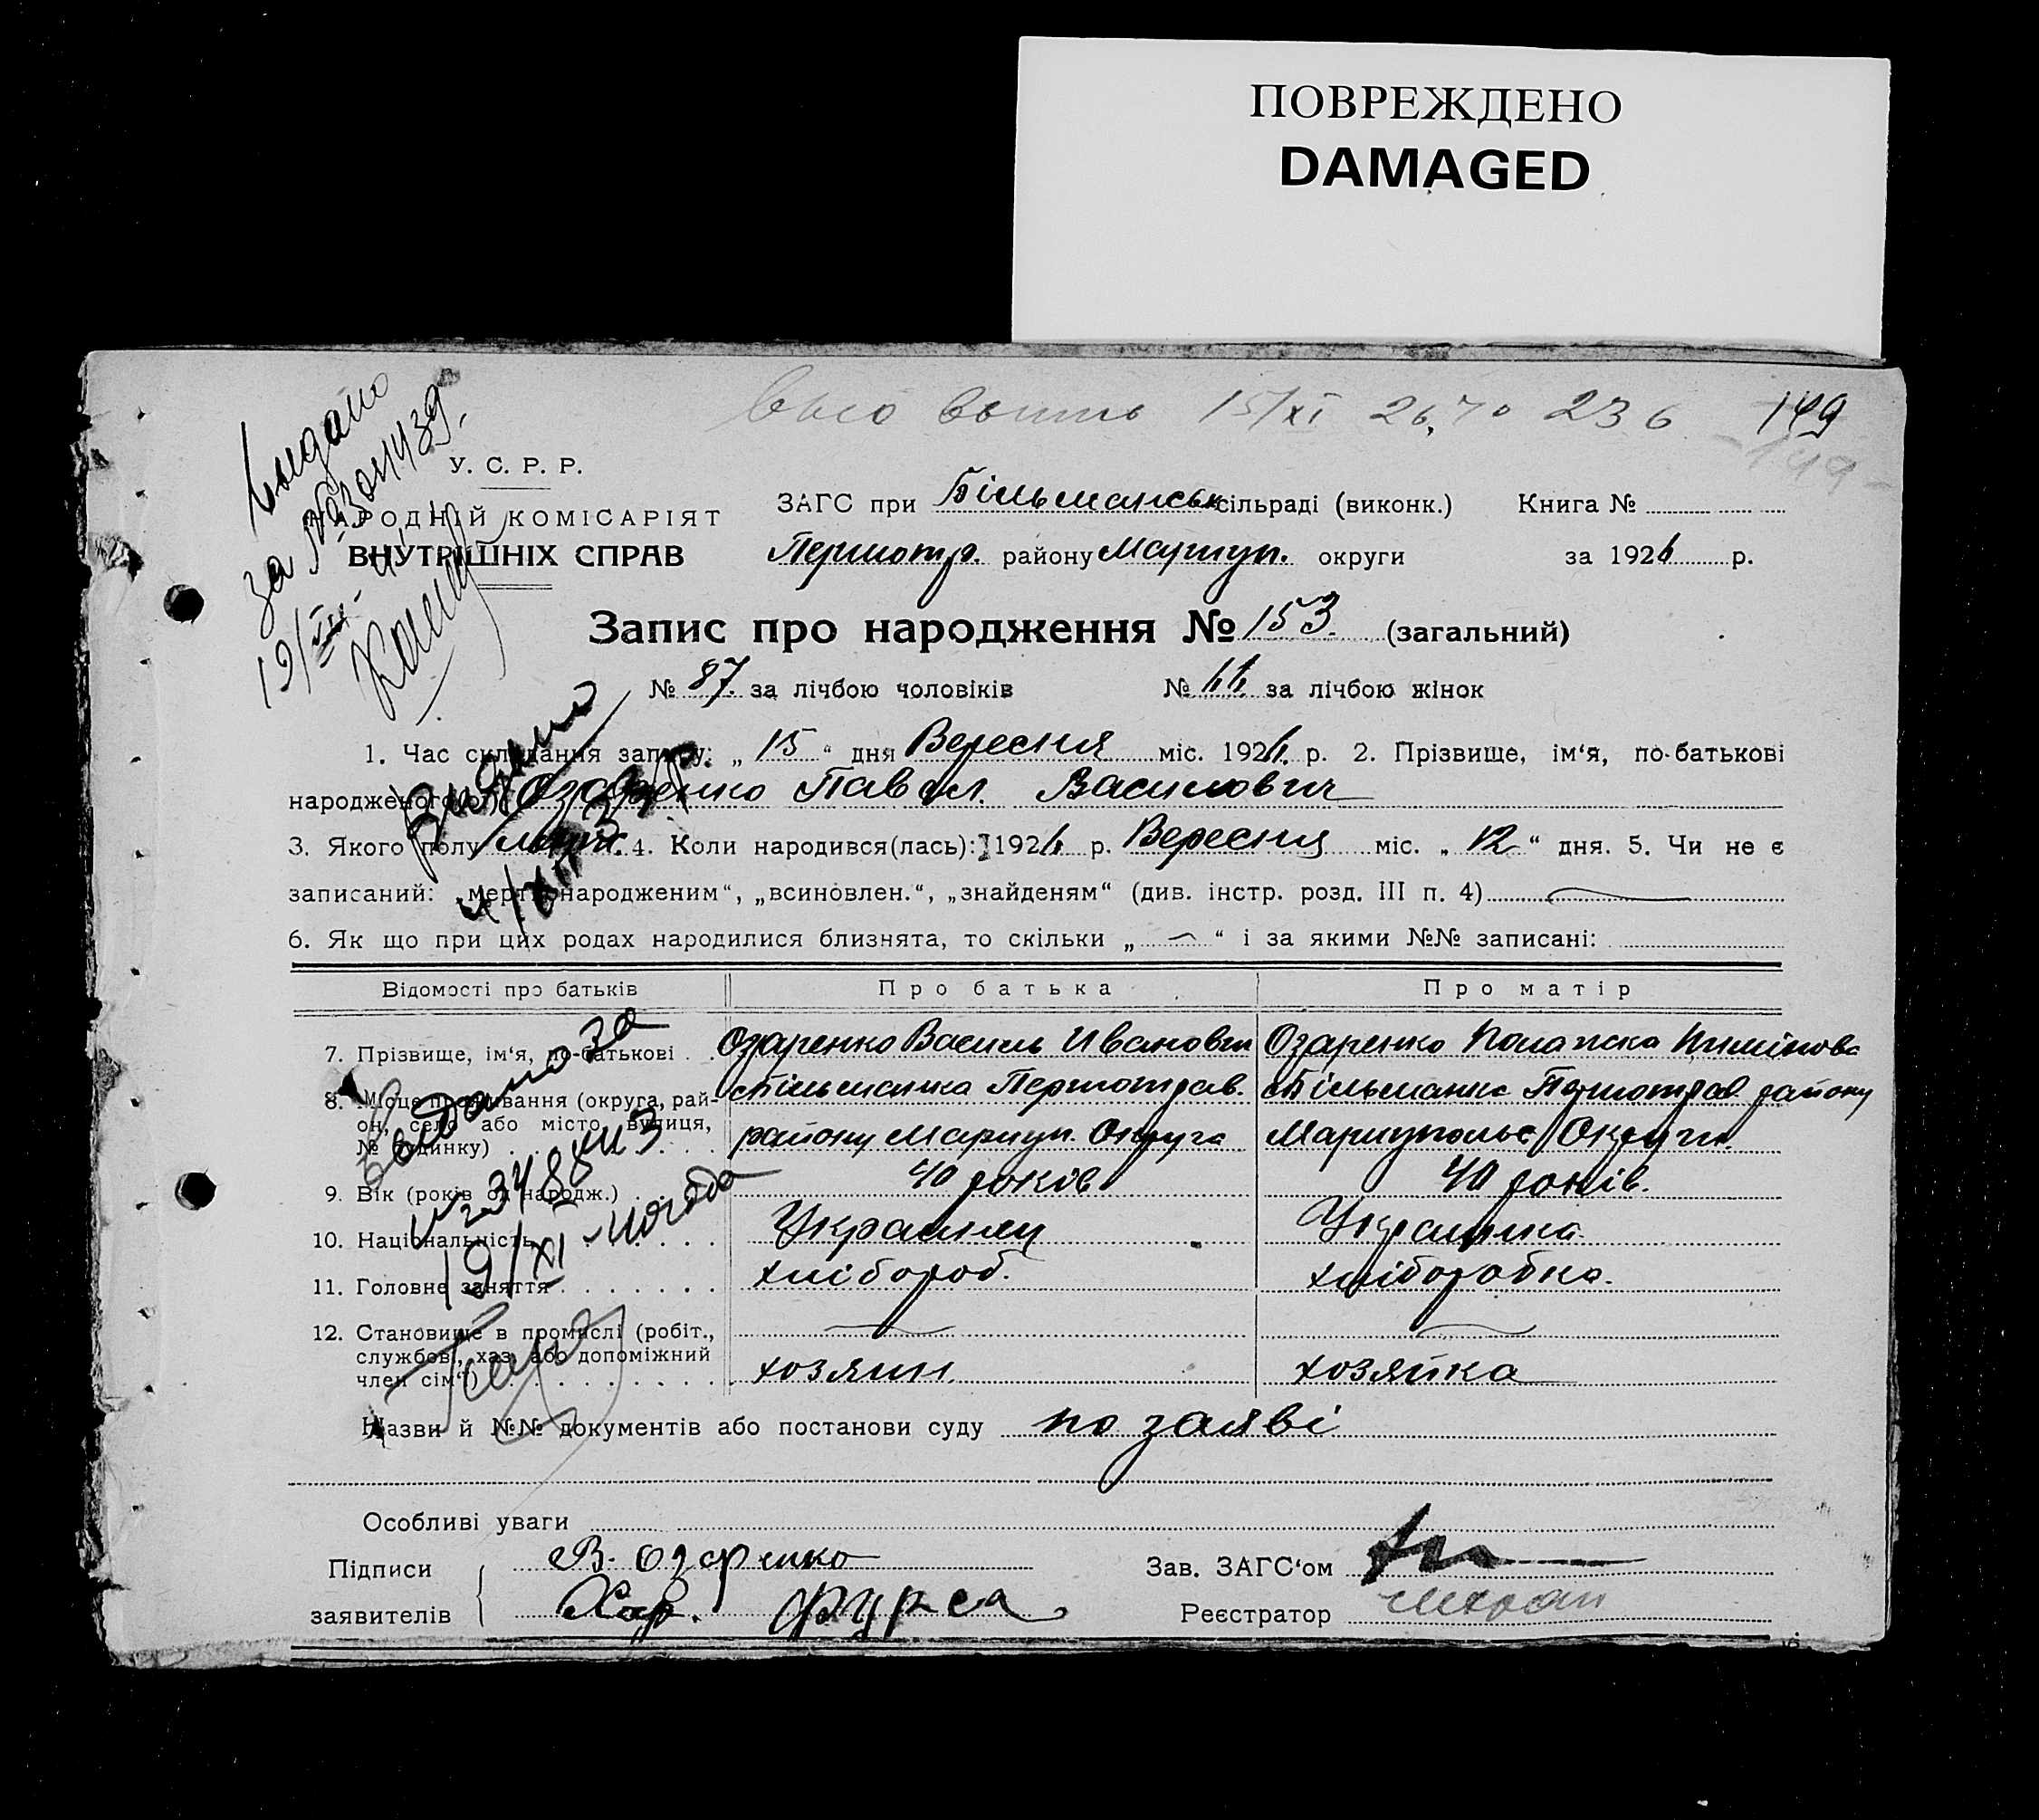 ПОВРЕЖДЕНО
DAMAGED
15/XI 26, 236 149
149
Выдано
за №
19/III
У. С. Р. Р.
НАРОДНІЙ КОМІСАРІЯТ
ВНУТРІШНІХ СПРАВ
ЗАГС при Більманськ сільраді (виконк.) Книга №
Першотр. району Мариуп. округи за 1926 р.
Запис про народження № 153. (загальний)
№ 87. за лічбою чоловіків № 66. за лічбою жінок
1. Час складання запису: „ 15 “ дня Вересня міс. 1926. р. 2. Прізвище, ім‘я, по-батькові
народженого Озаренко Павел. Василович
3. Якого полу 4. Коли народився(лась): 1926 р. Вересня міс. „ 12 “ дня. 5. Чи не є
записаний: „мертвонародженим“, „всиновлен.“, „знайденям“ (див. інстр. розд. III п. 4)
6. Як що при цих родах народилися близнята, то скільки „ — “ і за якими №№ записані:
Відомості про батьків Про батька Про матір
7. Прізвище, ім‘я, по-батькові . . Озаренко Василь Иванович Озаренко
8. Місце проживання (округа, район, село або місто, вулиця, № будинку) с Більманка Першотрав. району Мариуп. Округа с Більманка Першотрав району Мариупольс Округи.
9. Вік (років од народж.) 40 років 40 років.
10. Національність Украинец Украинка.
11. Головне заняття хлібороб. хліборобка.
12. Становище в промислі (робіт., службов., хаз. або допоміжний член сім‘ї) — хозяин. — хозяйка
Выдано за
19/XI
Назви й №№ документів або постанови суду по заяві
Особливі уваги
Підписи заявителів В. Озаренко
Хар. Фурса
Зав. ЗАГС‘ом
Реєстратор